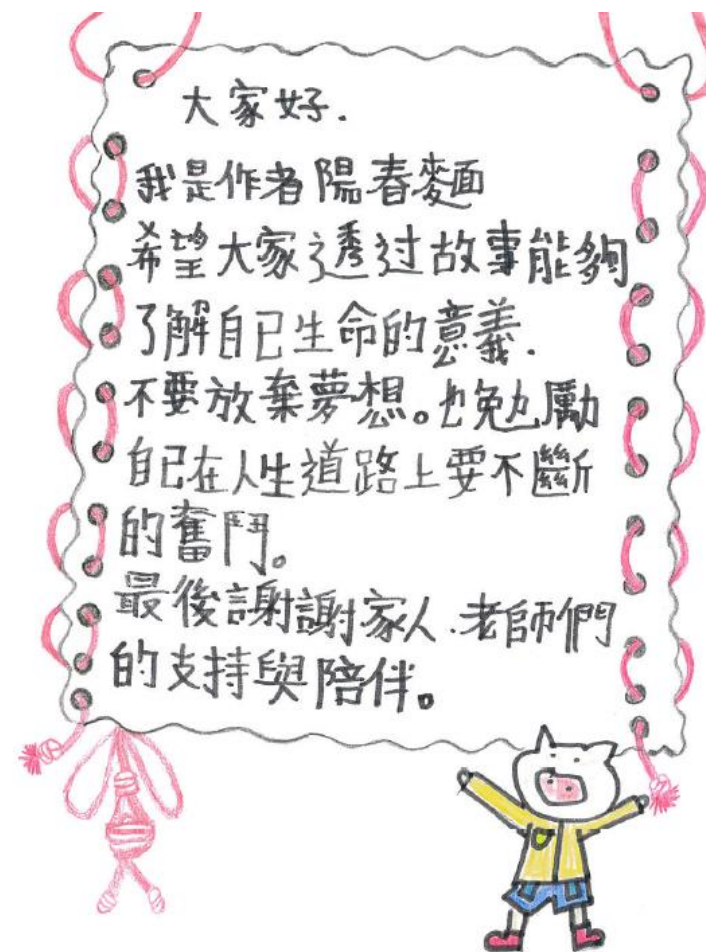 大家好.
我是作者陽春麵
希望大家透过故事能夠
了解自已生命的意義.
不要放棄夢想。也勉勵
自已在人生道路上要不斷
的奮鬥。
最後謝謝家人.老師們
的支持與陪伴。